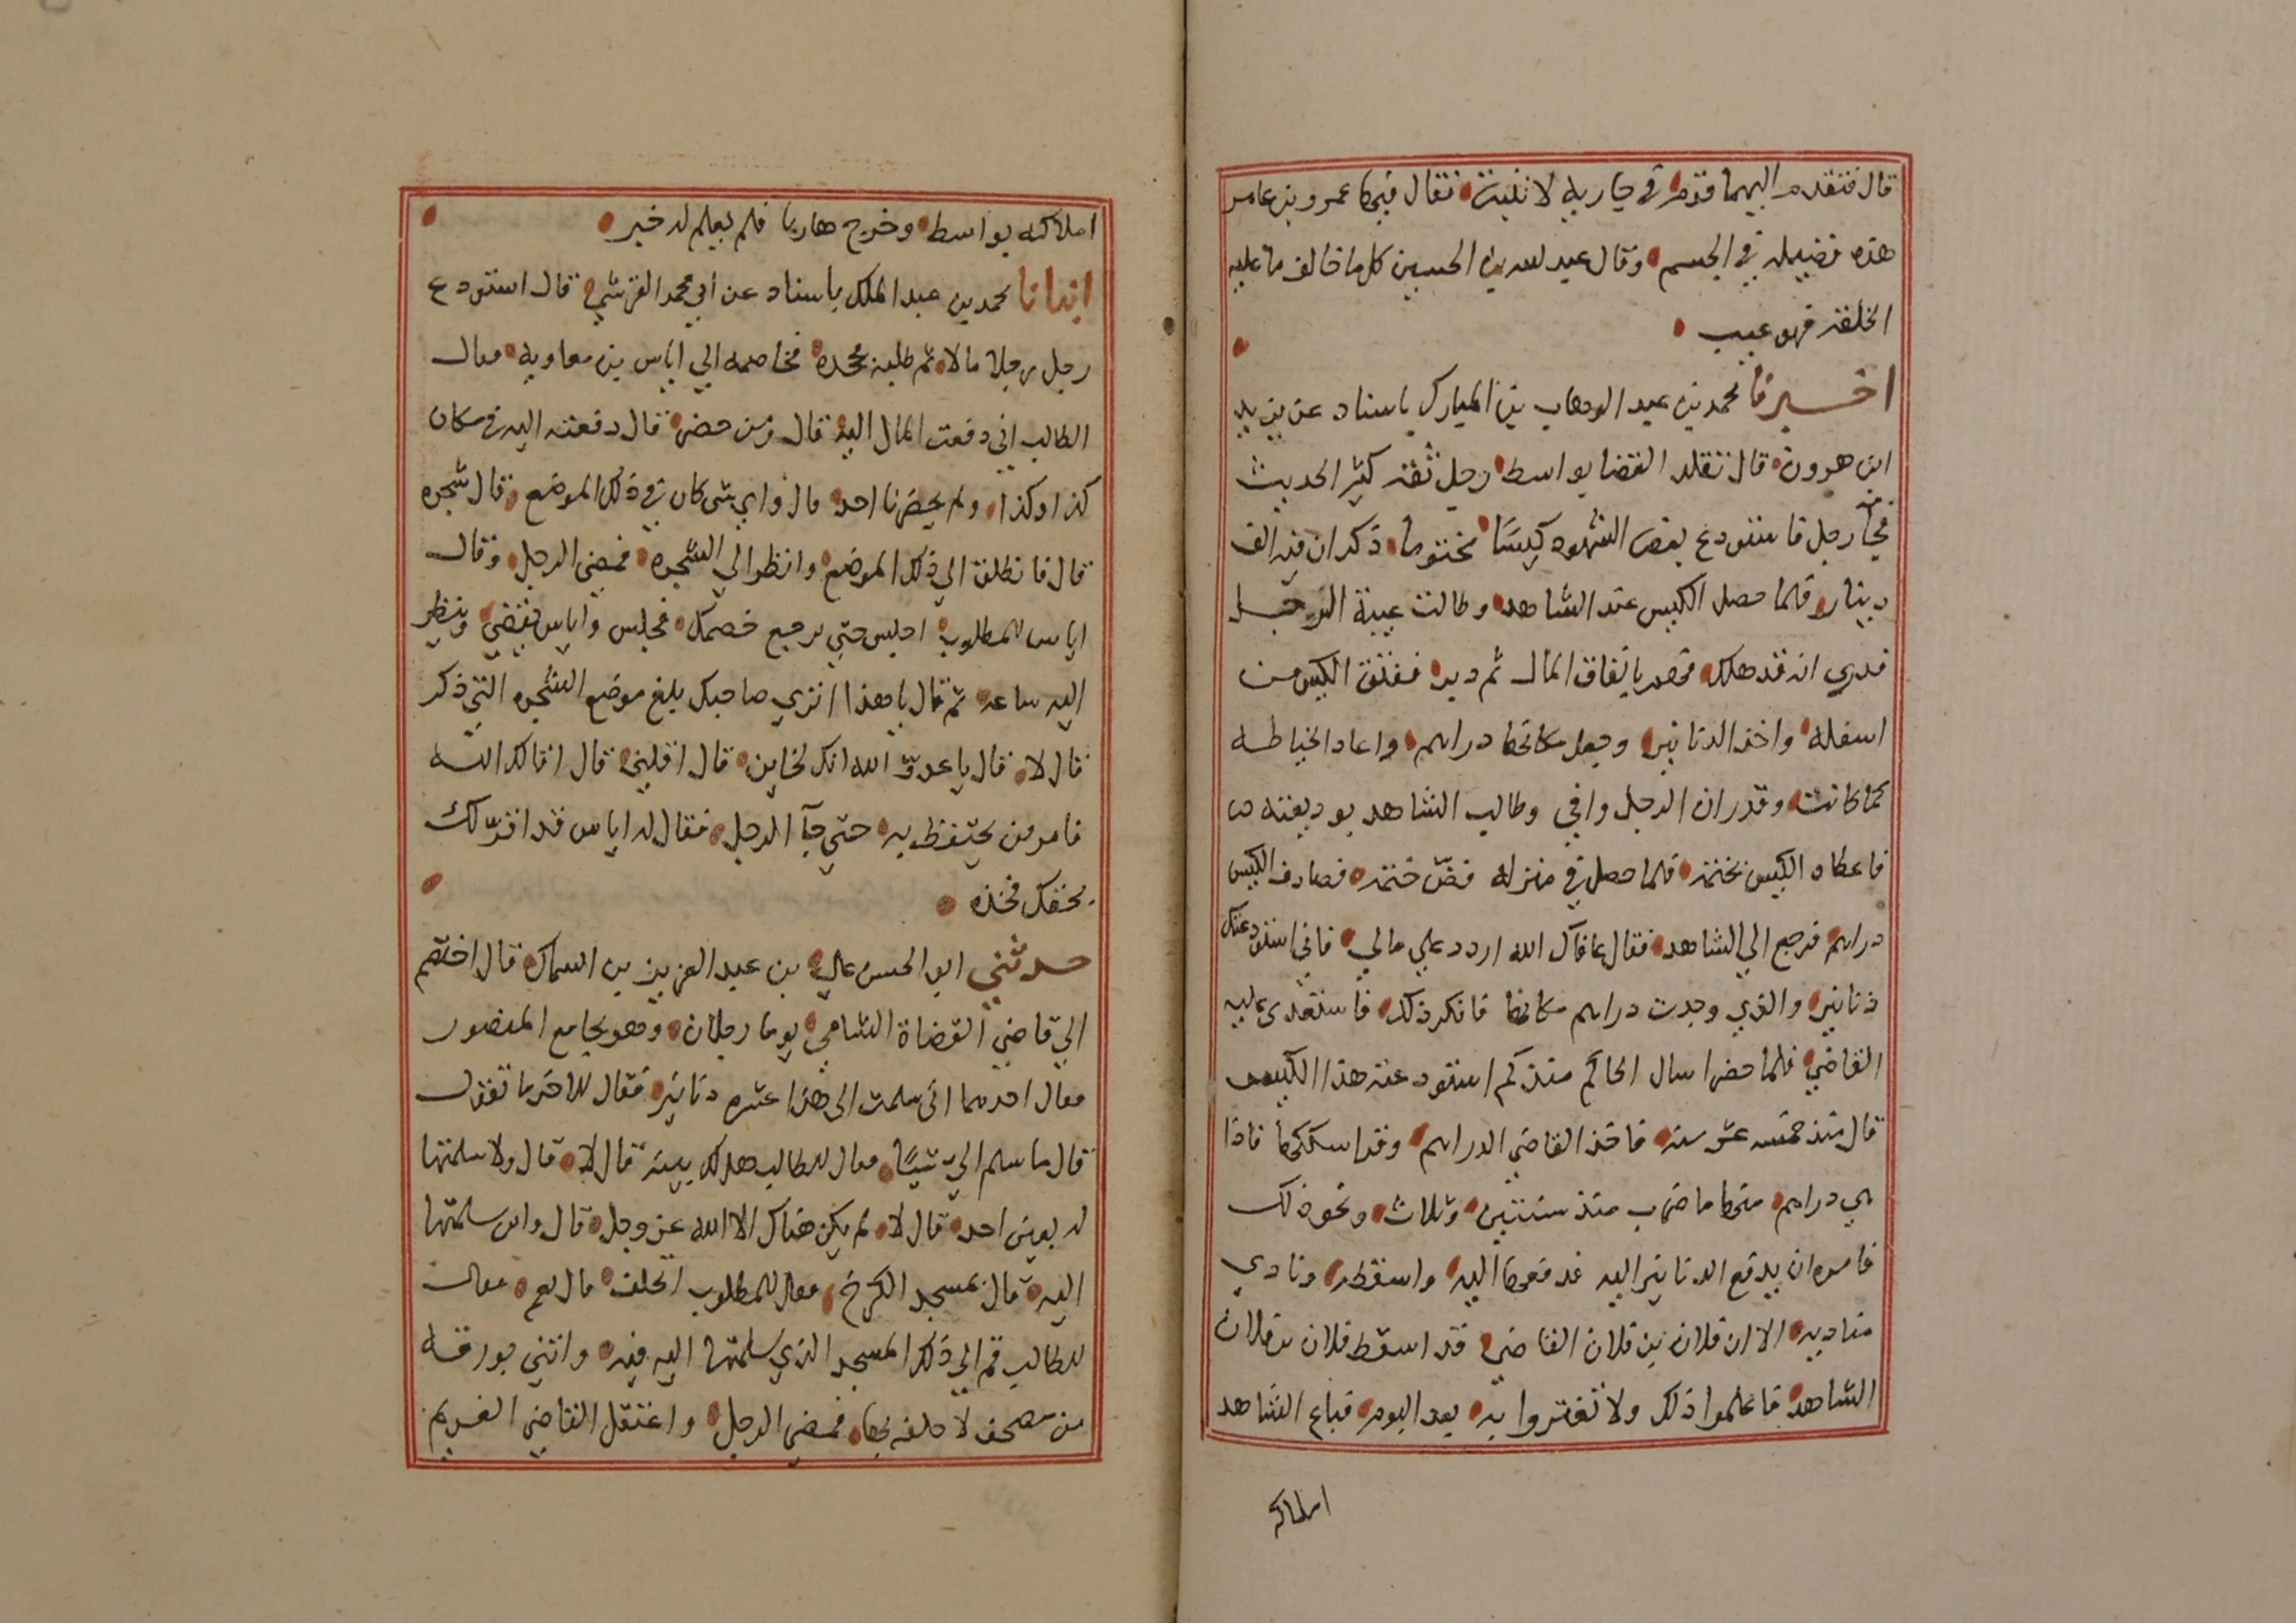 قال فتقدم اليهما قوم في جارية لا تنبت فقال فيها عمرو بن عامر
هذه فضيلة في الجسم وقال عبيد لله بن الحسين كل ما خالف ما عليه
الخلقة فهو عيب
اخبرنا محمد بن عبد الوهاب بن المبارك باسناد عن يزيد
ابن هرون قال تقلد القضا بواسط رجل ثقة كثير الحديث
فجآ رجل فاستودع بعض الشهود كيسًا مختوما ذكر ان فيه الف
دينار فلما حصل الكيس عند الشاهد وطالت غيبة الرجل
قدري انه قد هلك فهم بانفاق المال ثم دبر ففتق الكيس من
اسفله واخذ الدنانير وجعل مكانها دراهم واعاد الخياطه
كما كانت وقدر ان الرجل وافي وطالب الشاهد بوديعته
فاعطاه الكيس بختمه فلما حصل في منزله فضّ ختمه فصادف الكيس
دراهم فرجع الي الشاهد فقال عافاك الله اردد علي مالي فاني استودعتك
دنانير والذي وجدت دراهم مكانها فانكر ذلك فاستعدى عليه
القاضي فلما حضر اسال الحاكم منذ كم استودعته هذا الكيس
قال منذ خمسه عشر سنه فاخذ القاضي الدراهم وقرا سككها فاذا
هي دراهم منها ما ضرب منذ سنتين وثلاث ونحو ذلك
فامره ان يدفع الدنانير اليه فدفعها اليه واسقطه ونادي
مناديه الا ان فلان بن فلان القاضي قد اسقط فلان بن فلان
الشاهد فاعلموا ذلك ولا تغتروا به بعد اليوم فباع الشاهد
املاكه
املاكه بواسط وخرج هاربا فلم يعلم له خبر
انبانا محمد بن عبد الملك باسناد عن ابي محمد القرشي قال استودع
رجل رجلا مالا ثم طلبه فجحده فخاصمه الي اياس بن معاوية فقال
الطالب اني دفعت المال اليه قال ومن حضر قال دفعته اليه في مكان
كذا وكذا ولم يحضرنا احد قال واي شي كان في ذلك الموضع قال شجره
قال فانطلق الي ذلك الموضع وانظر الي الشجره فمضي الرجل وقال
اياس للمطلوب اجلس حتي يرجع خصمك فجلس واياس يقضي وينظر
اليه ساعه ثم قال يا هذا اتري صاحبك بلغ موضع الشجره التي ذكر
قال لا قال يا عدوّ الله انك لخاين قال اقلني قال اقالك الله
فامر من يحتفظ به حتي جآ الرجل فقال له اياس قد اقرّ لك
بحقك فخذه
حدثني ابو الحسن علي بن عبد العزيز بن السماك قال اختصم
الي قاضي القضاة الشامي يوما رجلان وهو بجامع المنصور
فقال احدهما اني سلمت الى هذا عشره دنانير فقال للاخر ما تقول
قال ما سلم اليّ شيًا فقال للطالب هل لك بينه قال لا قال ولا سلمتها
له بعين احد قال لا لم يكن هناك الا الله عز وجل قال واين سلمتها
اليه قال بمسجد الكرخ فقال للمطلوب اتحلف قال نعم فقال
للطالب قم الي ذلك المسجد الذي سلمتها اليه فيه واتني بورقه
من مصحف لاحلفه بها فمضي الرجل واعتقل القاضي الغريم